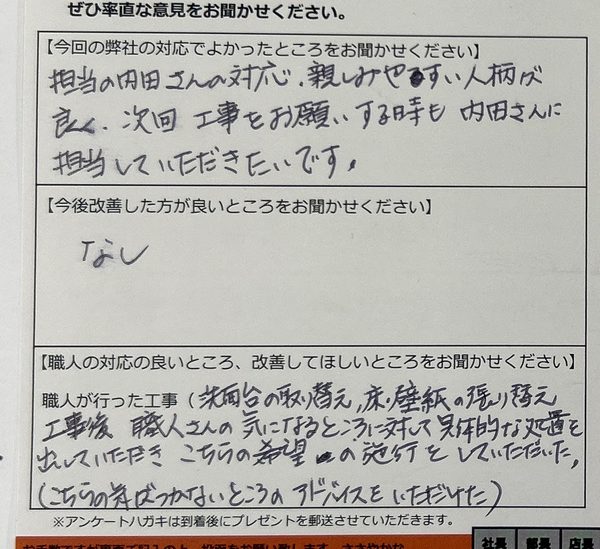 ぜひ率直な意見をお聞かせください。
【今回の弊社の対応でよかったところをお聞かせください】
担当の内田さんの対応、親しみやすい人柄が
良く、次回 工事をお願いする時も 内田さんに
担当していただきたいです。
【今後改善した方が良いところをお聞かせください】
なし
【職人の対応の良いところ、改善してほしいところをお聞かせください】
職人が行った工事（洗面台の取り替え、床・壁紙の張り替え
工事後 職人さんの気になるところに対して具体的な処置を
出していただき こちらの希望の施行をしていただいた。
（こちらの気づかないところのアドバイスをいただけた）
※アンケートハガキは到着後にプレゼントを郵送させていただきます。
社長 部長 店長